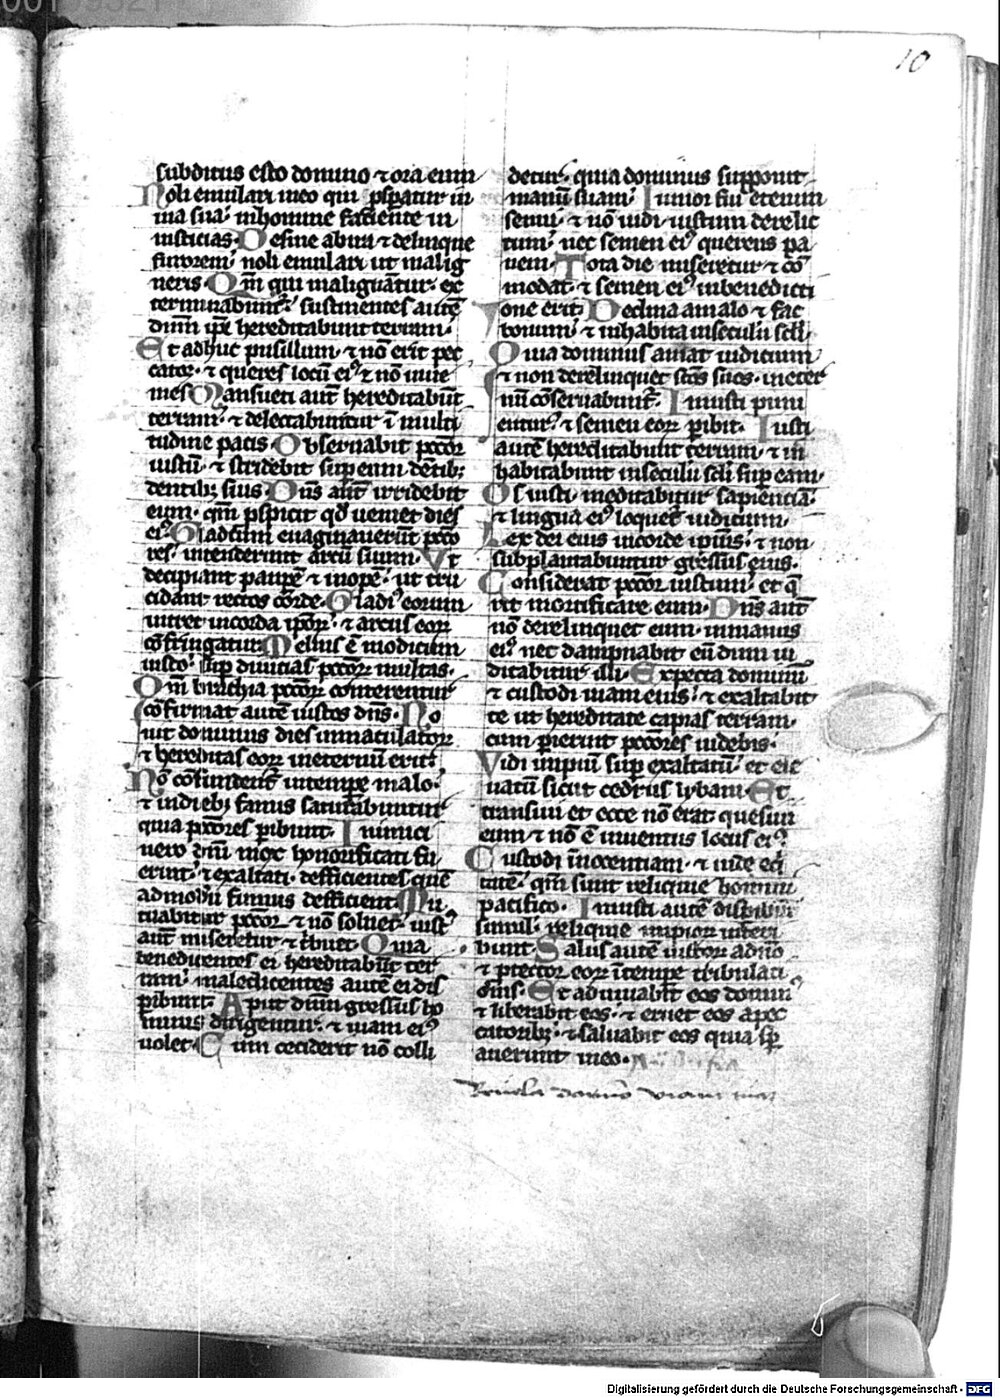 10
subditus esto domino ⁊ ora eum
Noli emulari ineo qui ꝓsꝑatur in
uia sua· inhomine faciente in
iusticias· Desine abira ⁊ delinque
furorem· noli emulari ut malig
neris· Qm̄ qui malignātur· ex
terminabunt᷑· sustinentes autē
dnm̄ ip̄i hereditabunt terram·
Et adhuc pusillum ⁊ nō erit pec
cator· ⁊ queres locū eiꝰ ⁊ nō inue
nies Mansueti aut̄ hereditabūt
terram· ⁊ delectabuntur ī multi
tudine pacis· Obseruabit pctōr
iustū· ⁊ stridebit suꝑ eum dētibꝫ
dentibꝫ suis· Dn̄s aut̄ irridebit
eum· qm̄ ꝓspicit qd̄ ueniet dies
eiꝰ· Gladium euaginauerūt pctō
res· intenderunt arcū suum· Vt
decipiant pauꝑē ⁊ inopē· ut tru
cidant rectos corde· Gladiꝰ eorum
intret incorda ipoꝝ· ⁊ arcus eoꝝ
cōfringatur Melius ē modicum
iusto· suꝑ diuicias pctōꝝ multas·
Qm̄ brachia pctōꝝ conterentur
cōfirmat autē iustos dn̄s· No
uit dominus dies inmaculatoꝝ
⁊ hereditas eoꝝ ineternū erit·
Nō cōfundent᷑ intempe malo·
⁊ indiebꝫ famis saturabuntur
quia pctōres ꝑibunt· Inimici
uero dn̄i mox honorificati fu
erint· ⁊ exaltati· defficientes quē
admodū fumus defficient Mu
tuabitur pctōr ⁊ nō soluet· iustꝰ
aut̄ miseretur ⁊ t̄buet· Quia
benedicentes ei hereditabūt ter
ram· maledicentes autē ei dis
ꝑibunt· Aput dnm̄ gressus ho
minis dirigentur· ⁊ uiam eiꝰ
uolet· Cum ceciderit nō colli
detur· quia dominus supponit
manū suam· Iunior fui etenim
senui· ⁊ nō uidi iustum derelic
tum· nec semen eiꝰ querens pa
nem· Tota die miseretur ⁊ cō
modat· ⁊ semen eiꝰ inbenedicti
one erit· Declina amalo ⁊ fac
bonum· ⁊ inhabita inseculū scl̄i
Quia dominus amat iudicium
⁊ non derelinquet sc̄os suos· ineter
nū cōseruabunt᷑· Iniusti puni
entur· ⁊ semen eoꝝ ꝑibit· Iusti
autē hereditabunt terram· ⁊ in
habitabunt inseculū scl̄i suꝑ eam·
Os iusti meditabitur sapienciā·
⁊ lingua eiꝰ loquet᷑ iudicium·
Lex dei eius incorde ipiꝰs· ⁊ non
subplantabuntur gressus eius·
Considerat pctōr iustum· et q̄
rit mortificare eum· Dn̄s aut̄
nō derelinquet eum· inmanus
eiꝰ· nec dampnabit eū dum iu
dicabitur illi· Expecta dominū
⁊ custodi uiam eius· ⁊ exaltabit
te ut hereditate capias terram·
cum ꝑierint pctōres uidebis·
Vidi impiū suꝑ exaltatū· et ele
uatū sicut cedrus lybani· Et
transiui et ecce nō erat· quesiui
eum ⁊ nō ē inuentus locus eiꝰ
Custodi īnocentiam· ⁊ uide eq̄
tatē· qm̄ sunt reliquie homini
pacifico· Iniusti autē disꝑibūt
simul· reliquie impioꝝ interi
bunt· Salus autē iustoꝝ adn̄o
⁊ ꝓtector eoꝝ ītempe tribulati
onis· Et adiuuabit eos dominꝰ
⁊ liberabit eos· ⁊ eruet eos apec
catoribꝫ· ⁊ saluabit eos quia sꝑ
auerunt ineo·
Reuela domino viam tuam
Digitalisierung gefördert durch die Deutsche Forschungsgemeinschaft - DFG